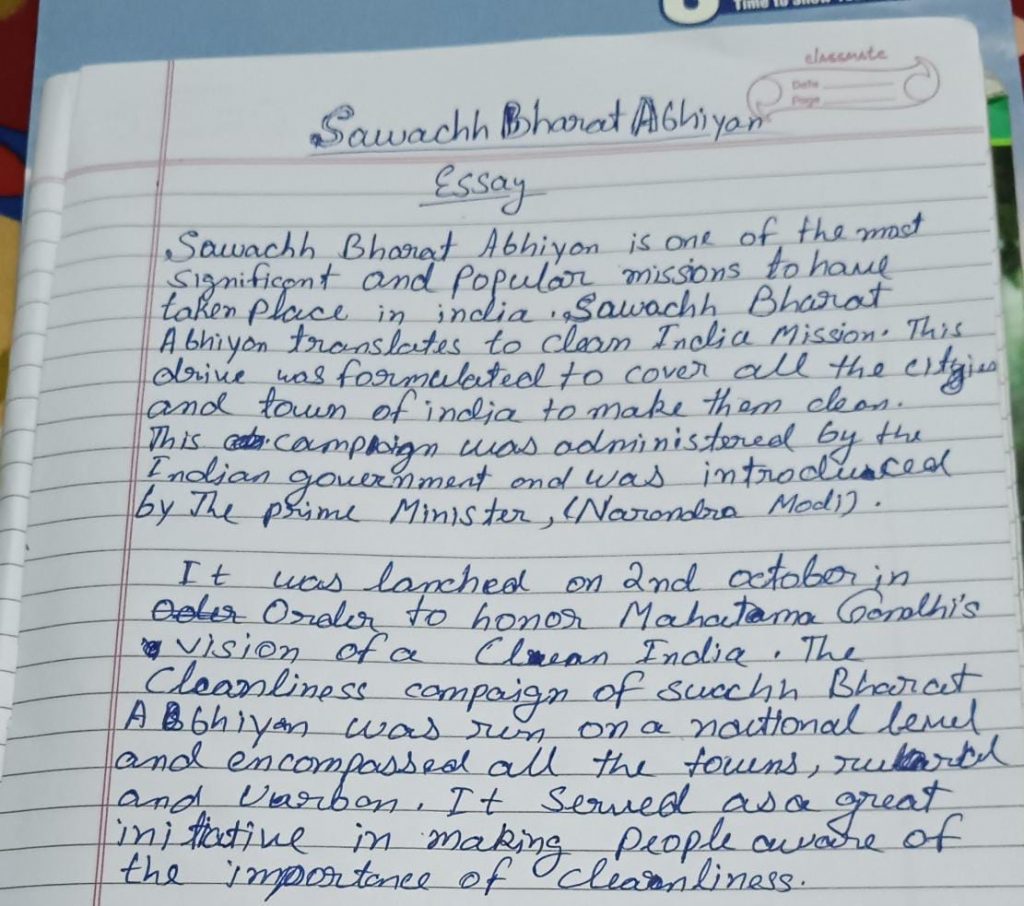 Time to show
classmate
Date
Page
Sawachh Bharat Abhiyan
Essay
Sawachh Bharat Abhiyan is one of the most
significant and Popular missions to have
taken place in india. Sawachh Bharat
Abhiyan translates to clean India Mission. This
drive was formulated to cover all the
and town of india to make them clean.
This campaign was administered by the
Indian government and was introduced
by The prime Minister, (Narendra Modi).
It was lanched on 2nd october in
Order to honor Mahatama Gandhi's
vision of a Clean India. The
Cleanliness campaign of Bharat
Abhiyan was run on a national level
and encompassed all the towns,
and It served as a great
initiative in making people aware of
the importance of cleanliness.